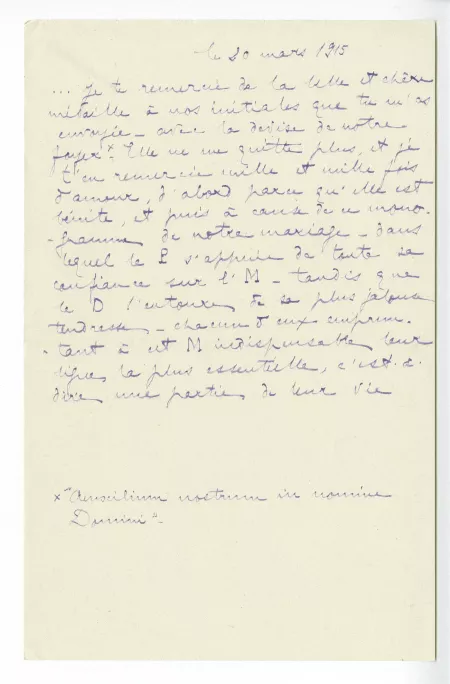 le 20 mars 1915
... je te remercie de la belle et chère
médaille à nos initiales que tu m'as
envoyée - avec la devise de notre
foyer x. Elle ne me quitte plus, et je
t'en remercie mille et mille fois
d'amour, d'abord parce qu'elle est
bénite, et puis à cause de ce mono-
-gramme de notre mariage - dans
lequel le P s'appuie de toute sa
confiance sur l'M - tandis que
le D l'entoure de sa plus jalouse
tendresse - chacun d'eux emprun-
-tant à cet M indispensable leur
ligne la plus essentielle, c'est-à-
dire une partie de leur vie
x "Auxilium nostrum in nomine
Domini" -